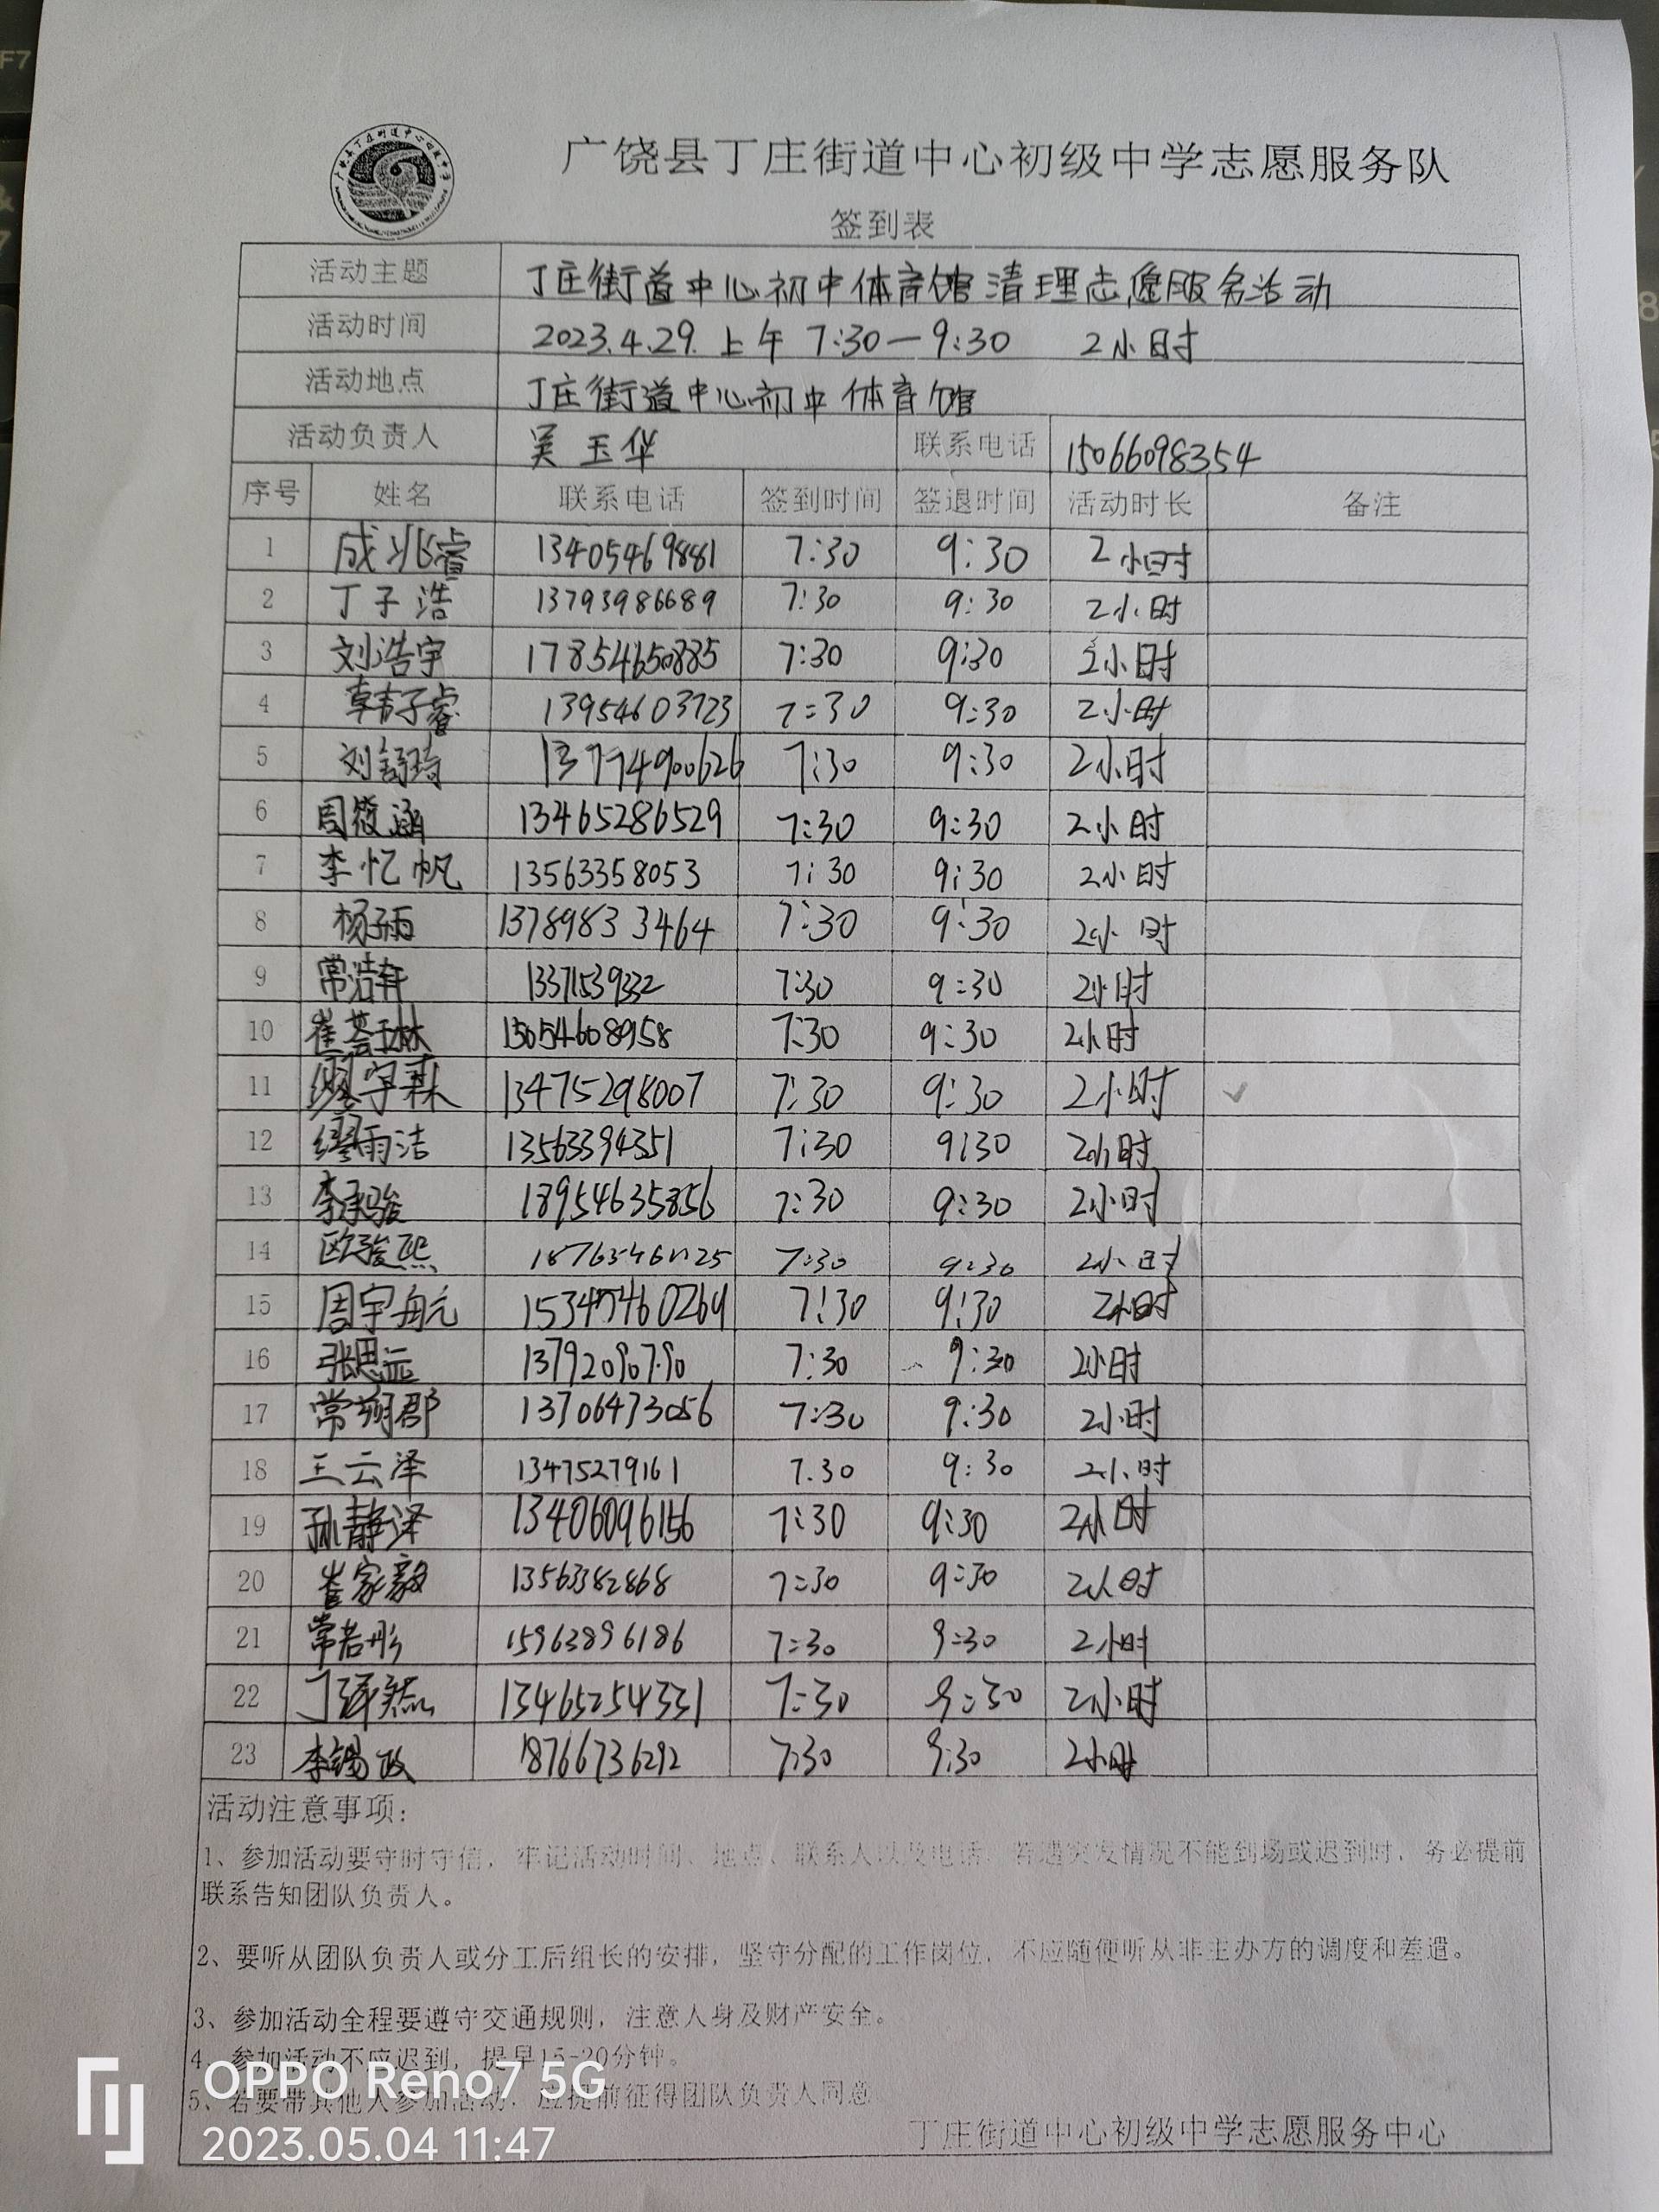 广饶县丁庄街道中心初级中学志愿服务队
签到表
活动主题 丁庄街道中心初中体育馆清理志愿服务活动
活动时间 2023.4.29.上午 7:30—9:30 2小时
活动地点 丁庄街道中心初中体育馆
活动负责人 吴玉华 联系电话 15066098354
序号 姓名 联系电话 签到时间 签退时间 活动时长 备注
1 成兆睿 13405469881 7:30 9:30 2小时
2 丁子浩 13793986689 7:30 9:30 2小时
3 刘浩宇 17854650885 7:30 9:30 2小时
4 韩子睿 13954603723 7:30 9:30 2小时
5 刘舒琦 7:30 9:30 2小时
6 周筱涵 13465286529 7:30 9:30 2小时
7 李忆帆 13563358053 7:30 9:30 2小时
8 杨子雨 13789833464 7:30 9:30 2小时
9 常浩轩 13371539332 7:30 9:30 2小时
10 崔 琳 15054608958 7:30 9:30 2小时
11 缪宇霖 13475298007 7:30 9:30 2小时 ✓
12 缪雨洁 13563394351 7:30 9:30 2小时
13 李承骏 18954635856 7:30 9:30 2小时
14 欧骏熙 7:30 9:30 2小时
15 周宇 7:30 9:30 2小时
16 张思远 13792090790 7:30 9:30 2小时
17 常翊郡 13706473056 7:30 9:30 2小时
18 王云泽 13475279161 7.30 9:30 2小时
19 孙静泽 13406096156 7:30 9:30 2小时
20 崔家毅 13563382868 7:30 9:30 2小时
21 常若彤 15963896186 7:30 9:30 2小时
22 丁泽然 13465254331 7:30 9:30 2小时
23 李锡政 18766736292 7:30 9:30 2小时
活动注意事项：
1、参加活动要守时守信，牢记活动时间、地点、联系人以及电话，若遇突发情况不能到场或迟到时，务必提前
联系告知团队负责人。
2、要听从团队负责人或分工后组长的安排，坚守分配的工作岗位，不应随便听从非主办方的调度和差遣。
3、参加活动全程要遵守交通规则，注意人身及财产安全。
4、参加活动不应迟到，提早15-20分钟。
5、若要带其他人参加活动，应提前征得团队负责人同意
丁庄街道中心初级中学志愿服务中心
OPPO Reno7 5G
2023.05.04 11:47